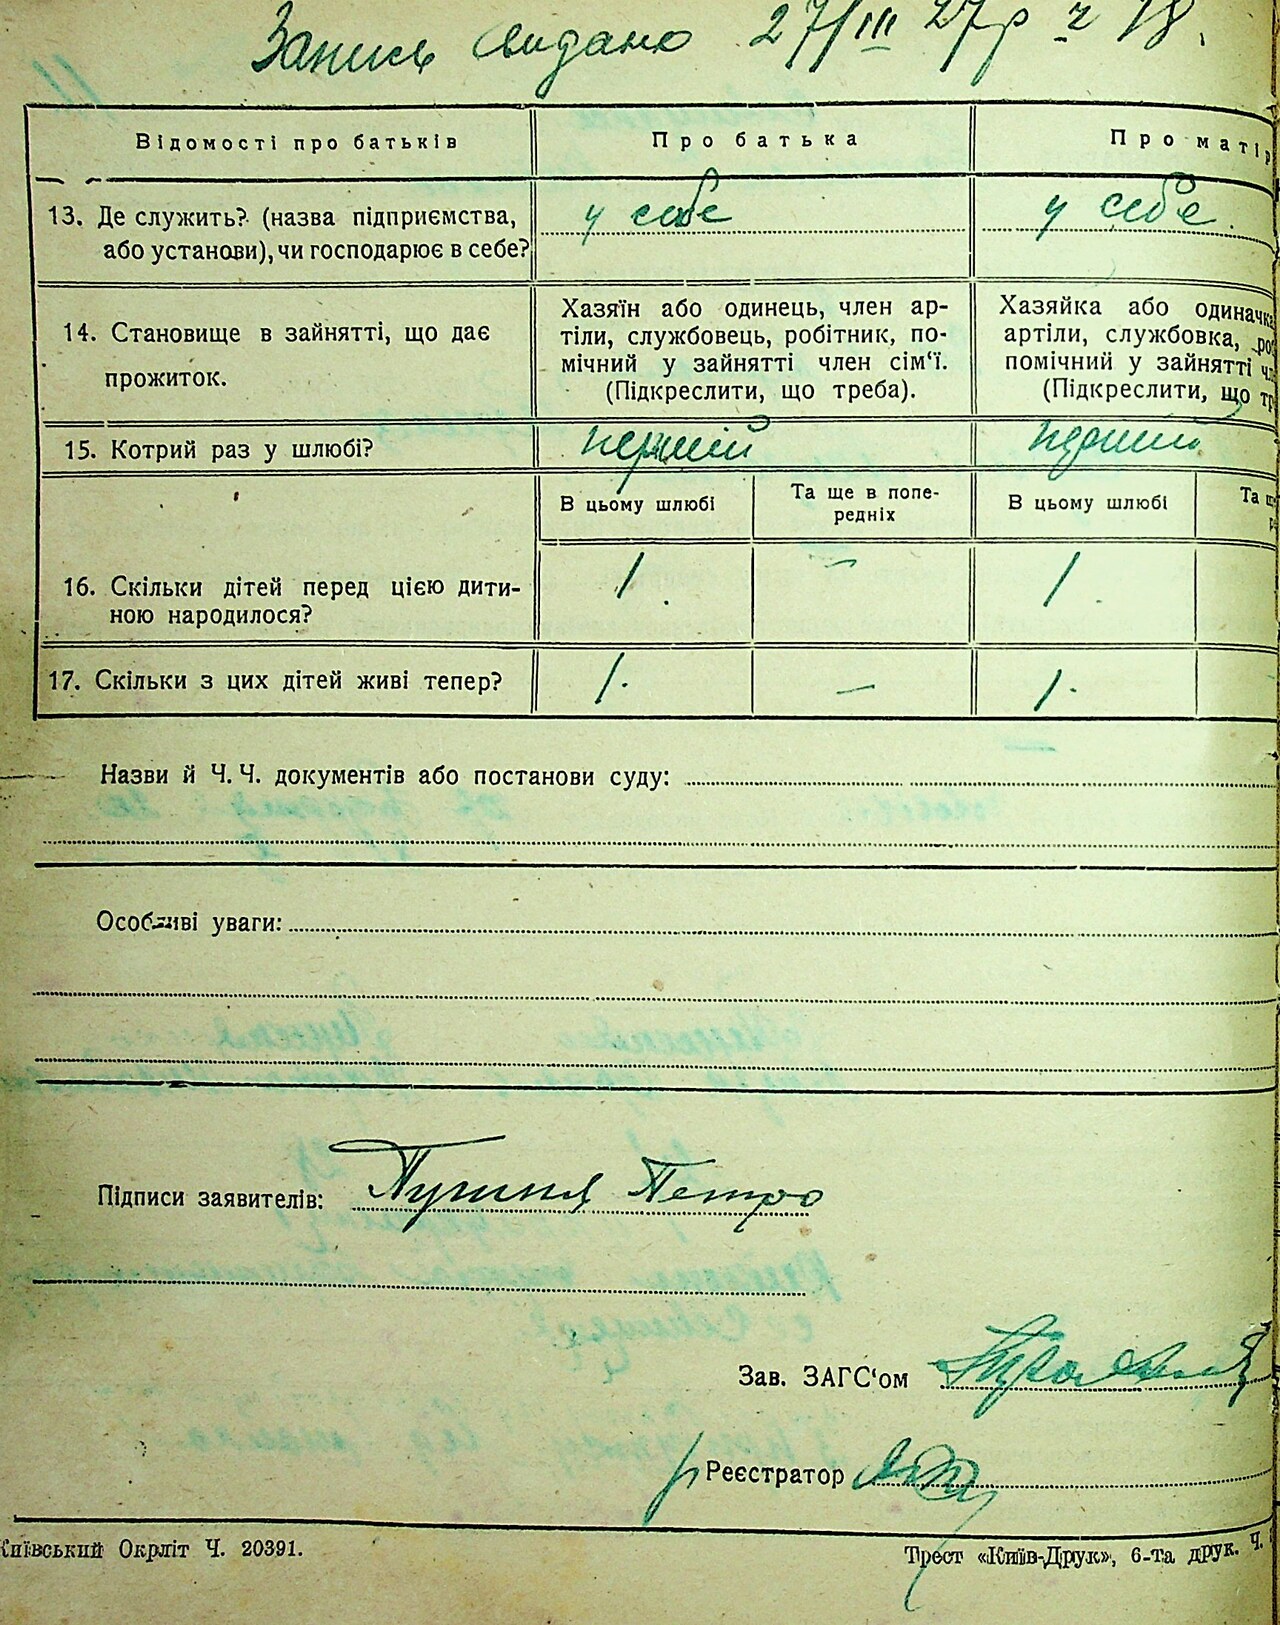 Запись видано 27/III 27р ч 18.
Відомості про батьків
Про батька
Про матір
13. Де служить? (назва підприємства,
або установи), чи господарює в себе?
у себе
у себе.
14. Становище в зайнятті, що дає
прожиток.
Хазяїн або одинець, член ар-
тіли, службовець, робітник, по-
мічний у зайнятті член сім‘ї.
(Підкреслити, що треба).
Хазяйка або одиначка
артіли, службовка,
помічний у зайнятті
(Підкреслити, що
15. Котрий раз у шлюбі?
перший
перший
В цьому шлюбі
Та ще в попе-
редніх
В цьому шлюбі
Та
16. Скільки дітей перед цією дити-
ною народилося?
1.
—
1.
17. Скільки з цих дітей живі тепер?
1.
—
1.
Назви й Ч. Ч. документів або постанови суду:
Особливі уваги:
Підписи заявителів:
Петро
Зав. ЗАГС‘ом
Реєстратор
Київський Окрліт Ч. 20391.
Трест «Київ-Друк», 6-та друк. Ч.